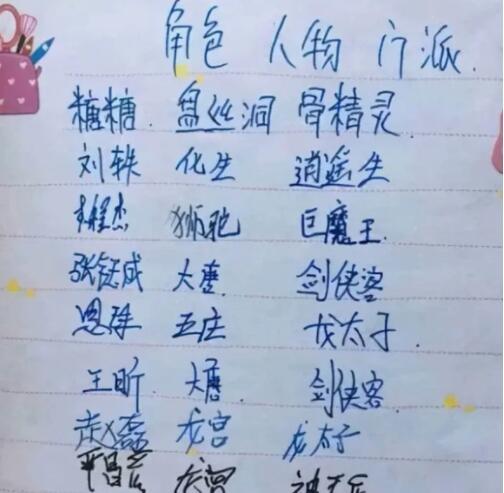 角色 人物 门派
糖糖 盘丝洞 骨精灵
刘轶 化生 逍遥生
程杰 狮驼 巨魔王
张钰成 大唐 剑侠客
恩硃 五庄 龙太子
王昕 大唐 剑侠客
赵鑫 龙宫 龙太子
龙宫